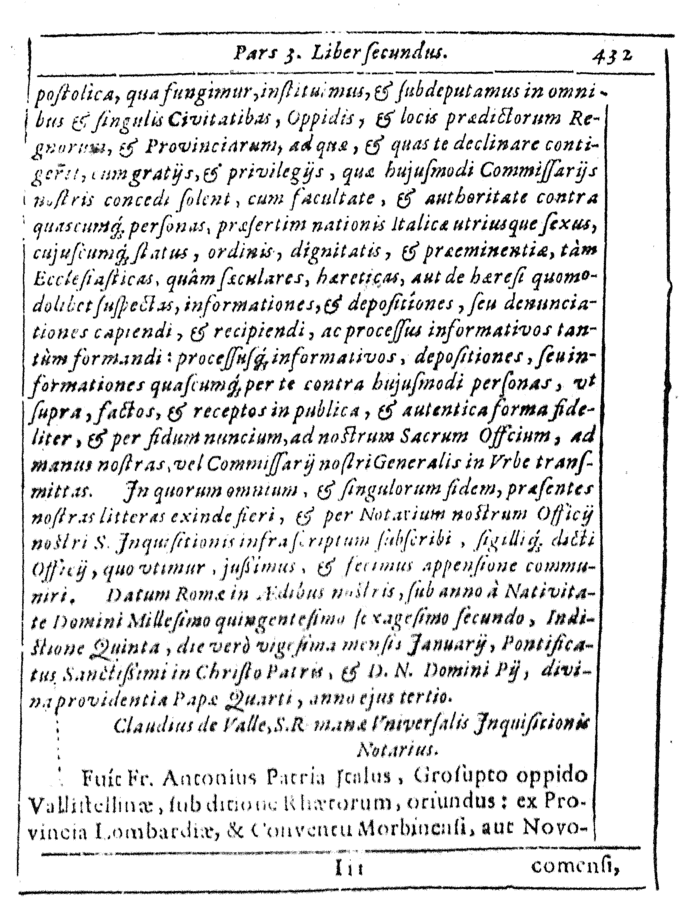 Pars 3. Liber secundus. 432
postolica, qua fungimur, instituimus, & subdeputamus in omni-
bus & singulis Civitatibas, Oppidis, & locis prædictorum Re-
gnorum, & Provinciarum, ad quæ, & quas te declinare conti-
gerit, cum gratijs, & privilegijs, quæ hujusmodi Commissarijs
nostris concedi solent, cum facultate, & authoritate contra
quascumq; personas, præsertim nationis Italicæ utriusque sexus,
cujuscumq; status, ordinis, dignitatis, & præeminentiæ, tàm
Ecclesiasticas, quâm sæculares, hæreticas, aut de hæresi quomo-
dolibet suspectas, informationes, & depositiones, seu denuncia-
tiones capiendi, & recipiendi, ac processus informativos tan-
tùm formandi: processusq; informativos, depositiones, seu in-
formationes quascumq; per te contra hujusmodi personas, vt
supra, factos, & receptos in publica, & autentica forma fide-
liter, & per fidum nuncium, ad nostrum Sacrum Offcium, ad
manus nostras, vel Commissarij nostri Generalis in Vrbe trans-
mittas. In quorum omnium, & singulorum fidem, præsentes
nostras litteras exinde fieri, & per Notarium nostrum Officij
nostri S. Inquisitionis infrascriptum subscribi, sigilliq; dicti
Officij, quo vtimur, jussimus, & fecimus appensione commu-
niri. Datum Romæ in Ædibus nostris, sub anno à Nativita-
te Domini Millesimo quingentesimo sexagesimo secundo, Indi-
ctione Quinta, die verò vigesima mensis Januarij, Pontifica-
tus Sanctissimi in Christo Patris, & D. N. Domini Pij, divi-
na providentia Papæ Quarti, anno ejus tertio.
Claudius de Valle, S. R manæ Vniversalis Inquisitionis
Notarius.
Fuit Fr. Antonius Patria Italus, Grosupto oppido
Vallistellinæ, sub ditione Rhætorum, oriundus: ex Pro-
vincia Lombardiæ, & Conventu Morbinensi, aut Novo-
Iii comensi,